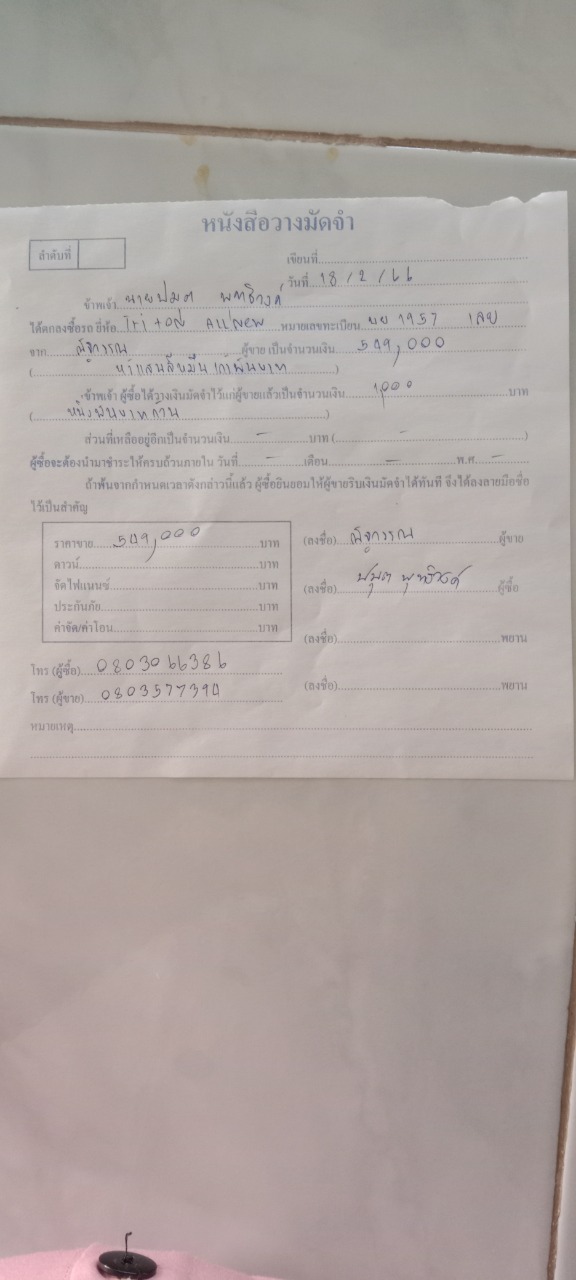 หนังสือวางมัดจำ
ลำดับที่
เขียนที่
วันที่ 18/2/66
ข้าพเจ้า นาย
ได้ตกลงซื้อรถ ยี่ห้อ Triton All New หมายเลขทะเบียน 1957 เลย
จาก ผู้ขาย เป็นจำนวนเงิน 549,000
(ห้าแสนสี่หมื่นเก้าพันบาท)
ข้าพเจ้า ผู้ซื้อได้วางเงินมัดจำไว้แก่ผู้ขายแล้วเป็นจำนวนเงิน 1,000 บาท
(หนึ่งพันบาทถ้วน)
ส่วนที่เหลืออยู่อีกเป็นจำนวนเงิน - บาท ( - )
ผู้ซื้อจะต้องนำมาชำระให้ครบถ้วนภายใน วันที่ - เดือน - พ.ศ. -
ถ้าพ้นจากกำหนดเวลาดังกล่าวนี้แล้ว ผู้ซื้อยินยอมให้ผู้ขายริบเงินมัดจำได้ทันที จึงได้ลงลายมือชื่อ
ไว้เป็นสำคัญ
ราคาขาย 549,000 บาท
ดาวน์ บาท
จัดไฟแนนซ์ บาท
ประกันภัย บาท
ค่าจัด/ค่าโอน บาท
(ลงชื่อ) ผู้ขาย
(ลงชื่อ) ผู้ซื้อ
(ลงชื่อ) พยาน
(ลงชื่อ) พยาน
โทร (ผู้ซื้อ) 0803066386
โทร (ผู้ขาย) 0803577394
หมายเหตุ